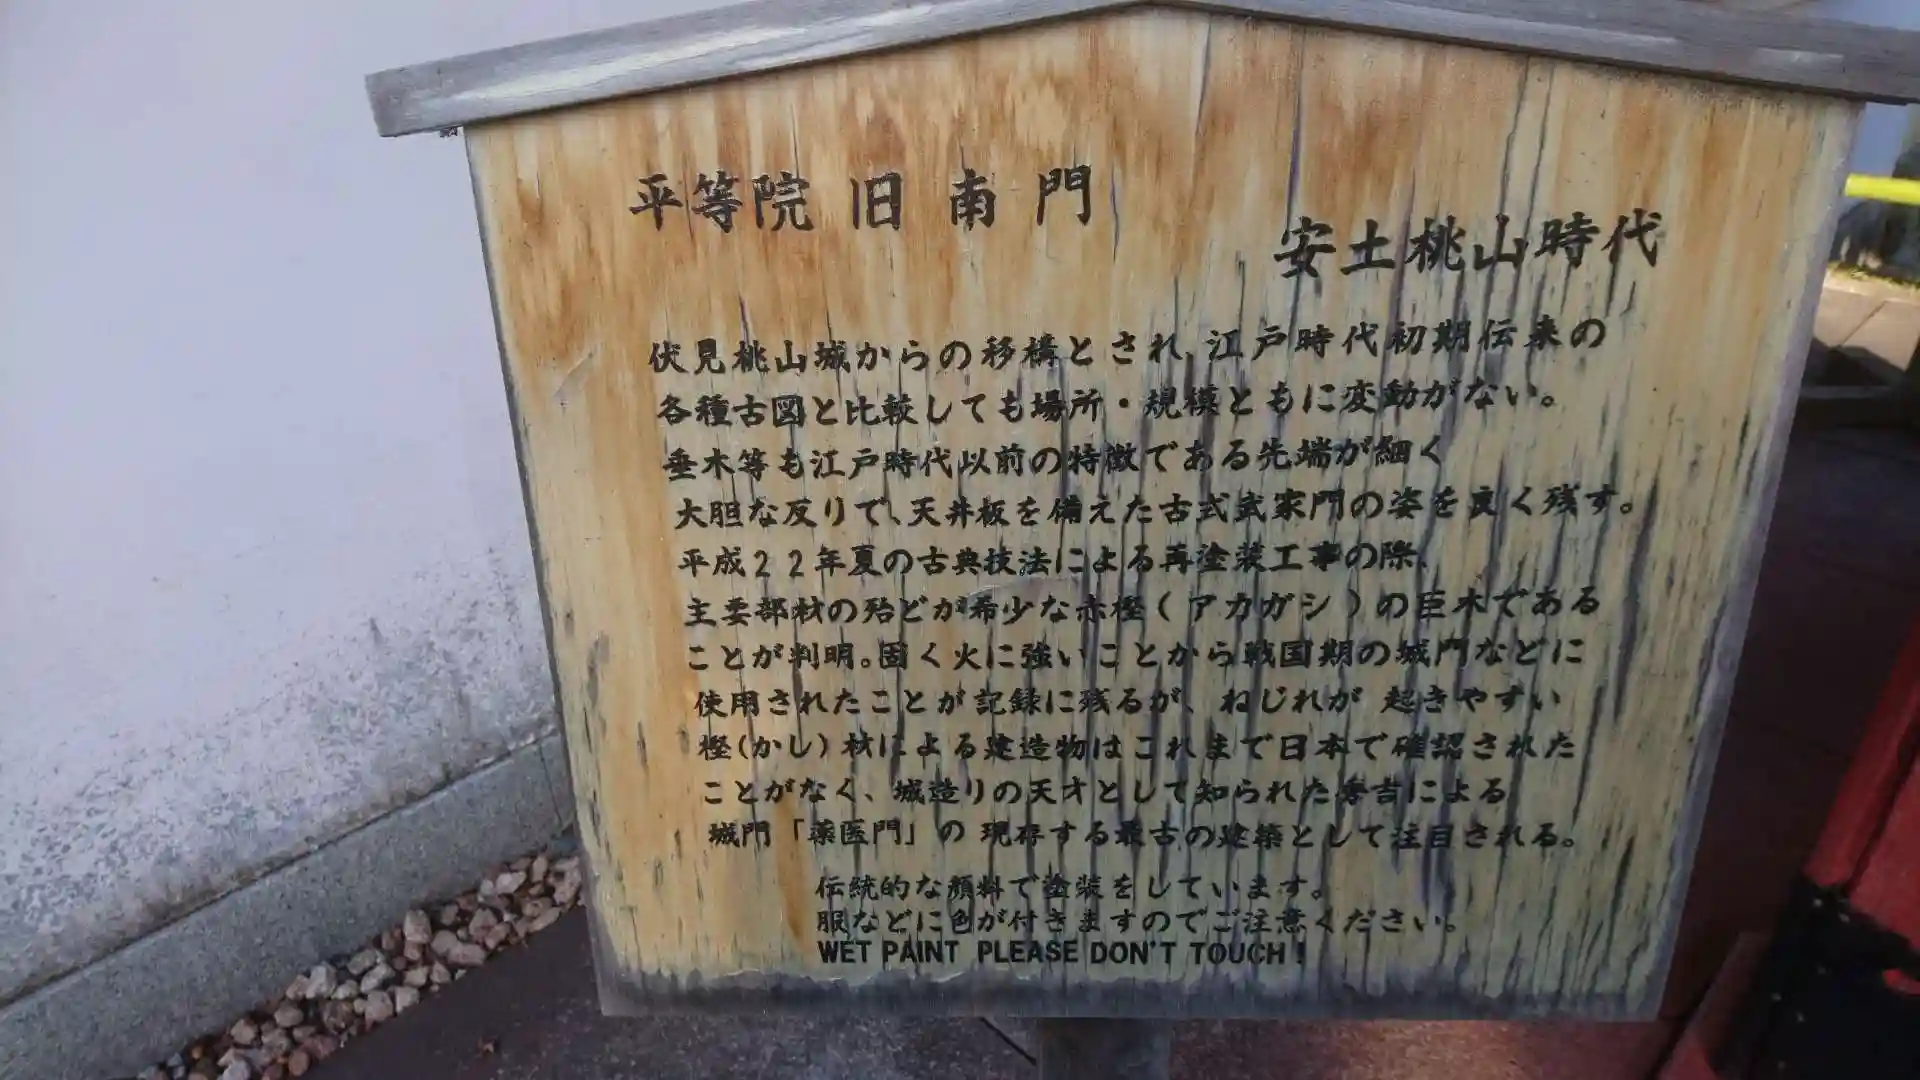 平等院 旧 南 門
安土桃山時代
伏見桃山城からの移構とされ、江戸時代初期伝来の
各種古図と比較しても場所・規模ともに変動がない。
垂木等も江戸時代以前の特徴である先端が細く
大胆な反りで、天井板を備えた古式武家門の姿を良く残す。
平成22年夏の古典技法による再塗装工事の際、
主要部材の殆どが希少な赤樫(アカガシ)の巨木である
ことが判明。固く火に強いことから戦国期の城門などに
使用されたことが記録に残るが、ねじれが 起きやすい
樫(かし)材による建造物はこれまで日本で確認された
ことがなく、城造りの天才として知られた秀吉による
城門「薬医門」の 現存する最古の建築として注目される。
伝統的な顔料で塗装をしています。
服などに色が付きますのでご注意ください。
WET PAINT PLEASE DON'T TOUCH!